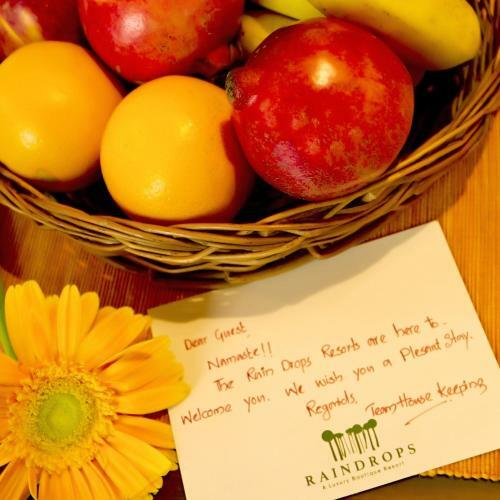 Dear Guest,
Namaste!!
The Rain Drops Resorts are here to
Welcome you. We wish you a Plesent Stay.
Regards,
Team House Keeping
RAINDROPS
A Luxury Boutique Resort